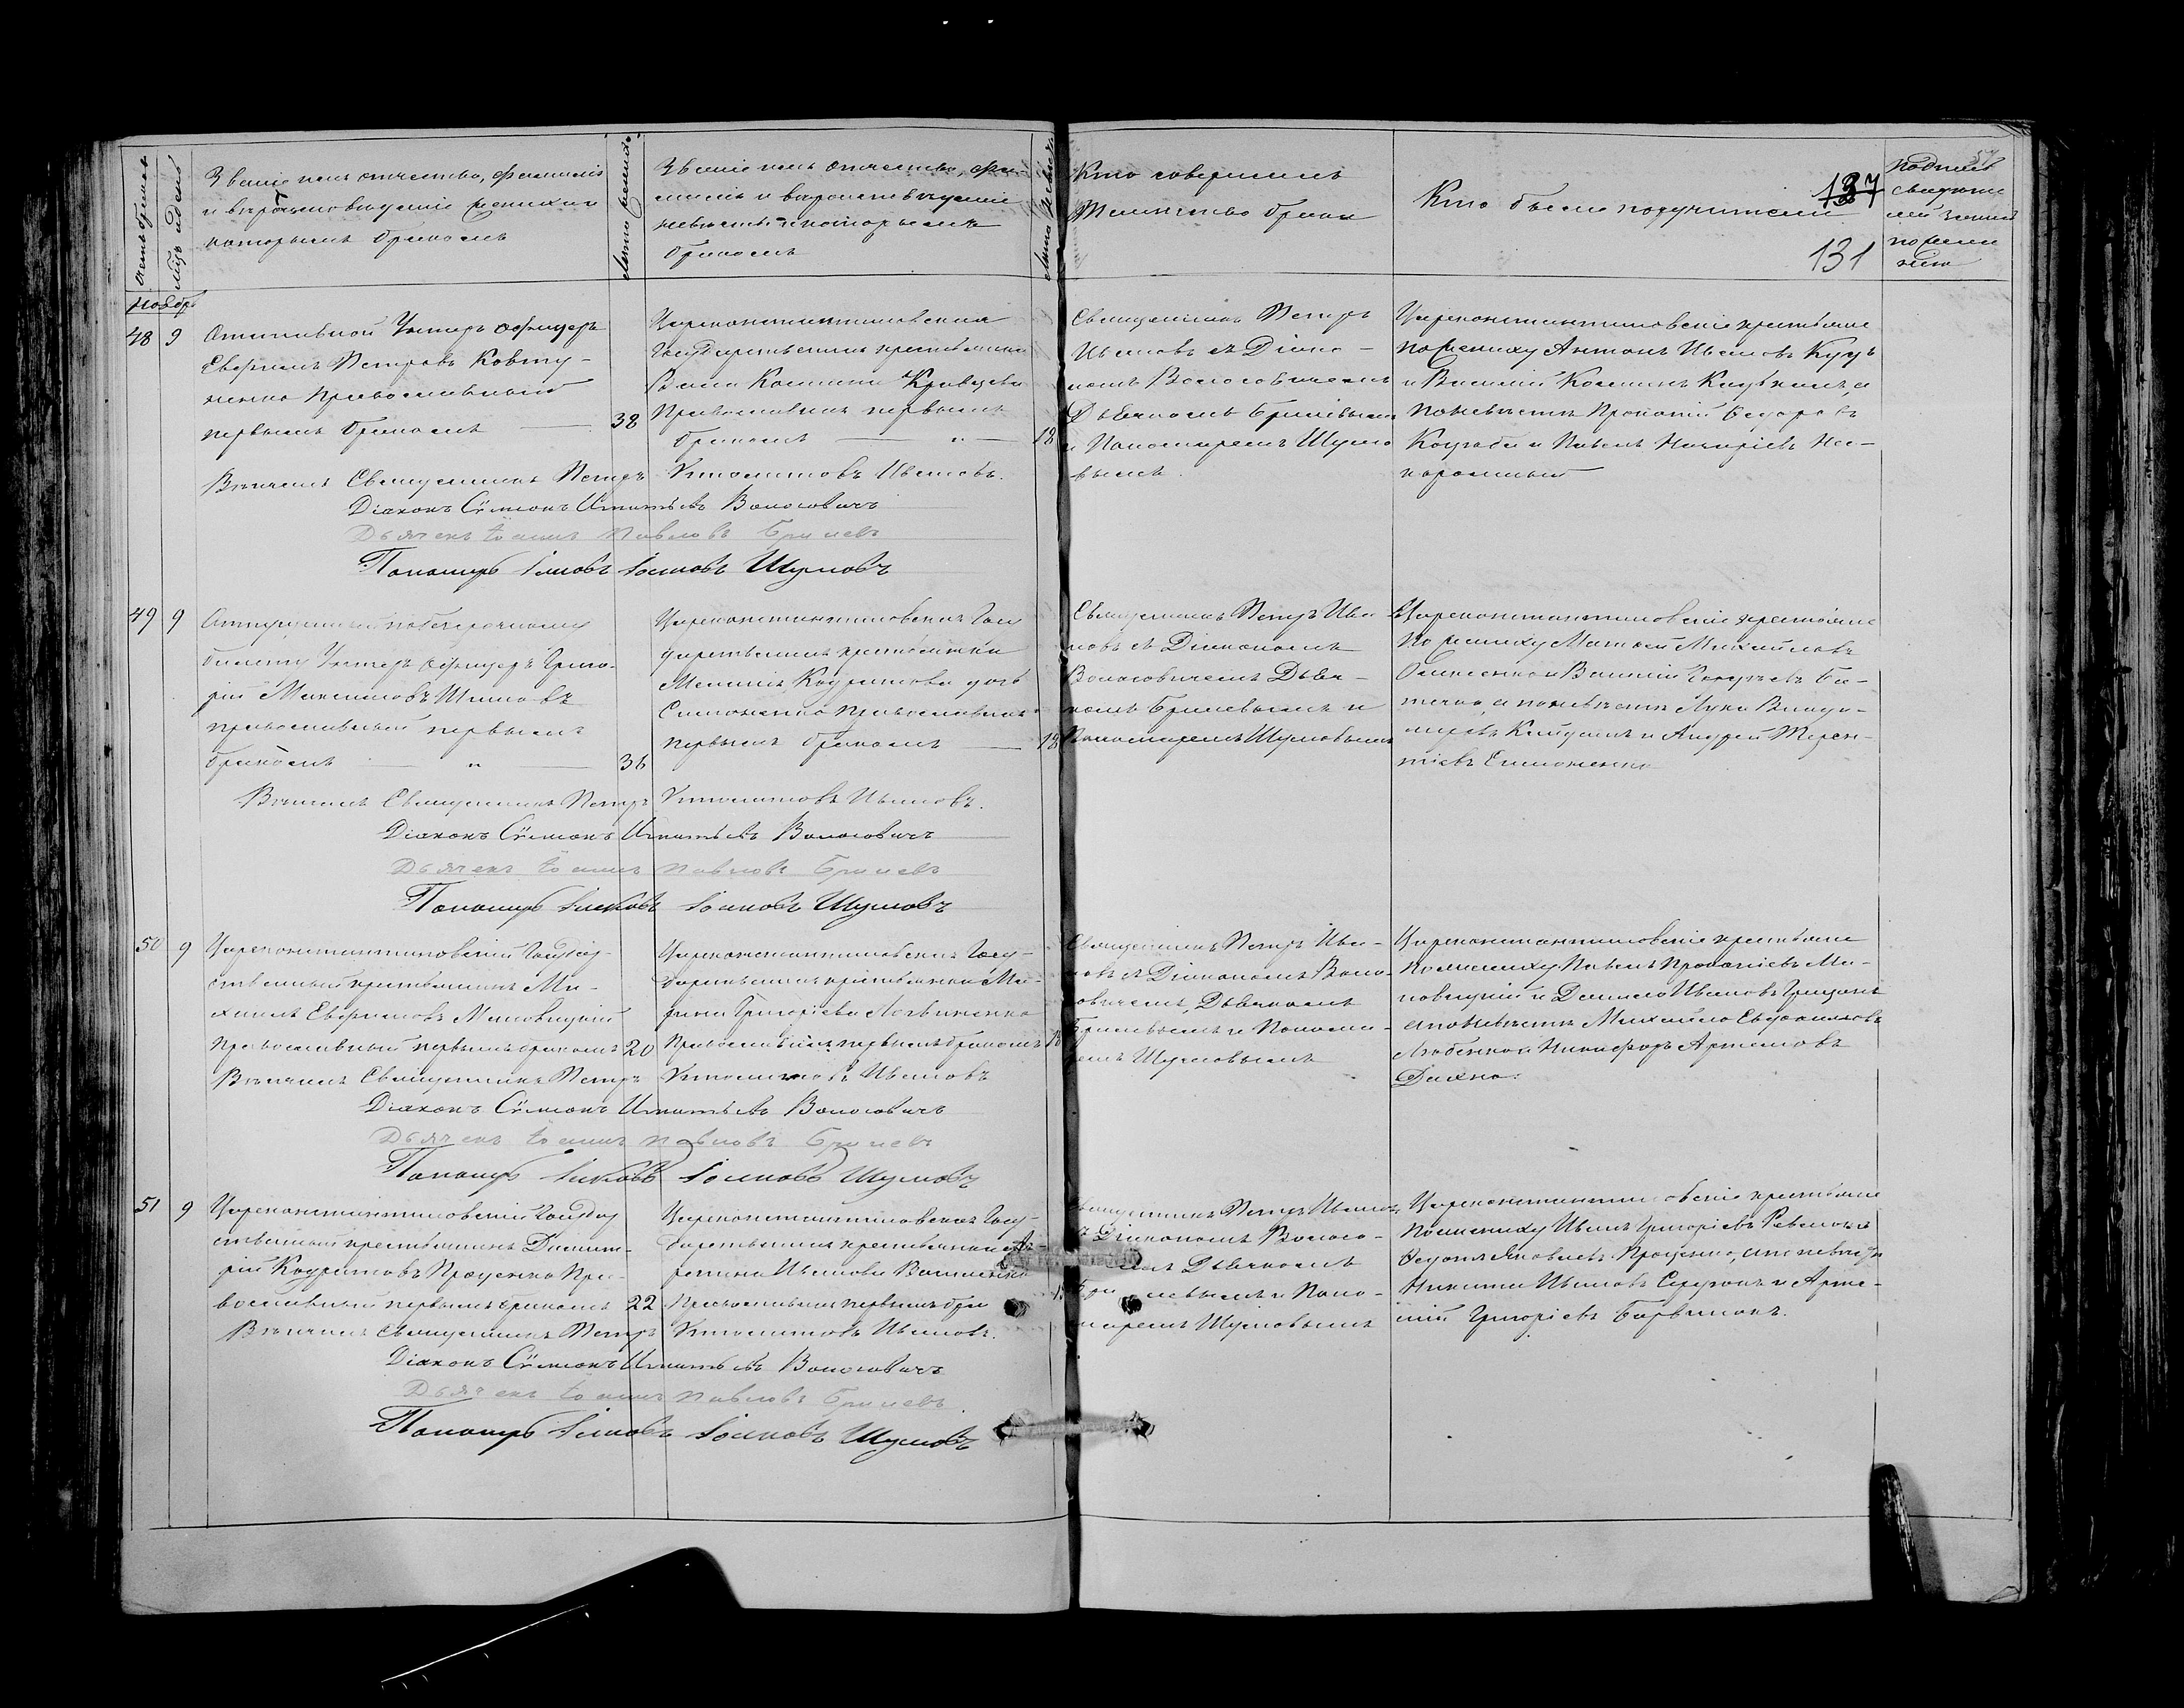 137
131
Счетъ браковъ
Мѣсяцъ и день
Званіе имя отчество, фамилія
и вѣроисповѣданіе жениха и
которымъ бракомъ
Лѣта жениха
Званіе имя отчество, фа-
милія и вѣроисповѣданіе
невѣсты и которымъ
бракомъ
Лѣта невѣсты
Кто совершилъ
Таинство брака
Кто были поручители
Подпись
свидѣте
лей записи
по жела
нію
Ноябр
48 9
Отставной Унтеръ офицеръ
Евфимъ Петровъ Ковту-
ненко Православный
первымъ бракомъ 38
Цареконстантиновская
Государственная крестьянка
Кравцова
Православная первымъ
бракомъ 18
Священникъ Петръ
Ивановъ съ Діако-
номъ Волосовичемъ
Дьячкомъ Брилевымъ
и Пономаремъ Шумо
вымъ
Цареконстантиновскіе крестьяне
по жениху Антонъ Ивановъ Куцъ
и Василій
по невѣстѣ Прокопій Федоровъ
и Павелъ
Вѣнчалъ Священникъ Петръ Ивановъ.
Діаконъ Сѵмеонъ Игнатьевъ Волосовичъ
Дьячекъ Іоаннъ Павловъ Брилевъ
Пономарь Іаковъ Іоанновъ Шумовъ
49 9
Отпущенный по безсрочному
билету Унтеръ офицеръ Григо-
рій Максимовъ
православный первымъ
бракомъ 36
Цареконстантиновская Госу
дарственная крестьянка
Меланія Кодратова дочь
Симоненко Православная
первымъ бракомъ 18
Священникъ Петръ Ива-
новъ съ Діакономъ
Волосовичемъ Дьяч-
комъ Брилевымъ и
Пономаремъ Шумовымъ
Цареконстантиновскіе крестьяне
по жениху Матвей Михайловъ
и Василій
а по невѣстѣ Лука
и Андрей Терен-
тіевъ Симоненко
Вѣнчалъ Священникъ Петръ Ивановъ.
Діаконъ Сѵмеонъ Игнатьевъ Волосовичъ
Дьячекъ Іоаннъ Павловъ Брилевъ
Пономарь Іаковъ Іоанновъ Шумовъ
50 9
Цареконстантиновскій Государ-
ственный крестьянинъ Ми-
хаилъ Евфимовъ
Православный первымъ бракомъ 20
Цареконстантиновская Госу-
дарственная крестьянка Ма-
рина Григоріева Логвиненко
Православная первымъ бракомъ 18
Священникъ Петръ Ива-
новъ съ Діакономъ Воло-
совичемъ, Дьячкомъ
Брилевымъ и Понома-
ремъ Шумовымъ
Цареконстантиновскіе крестьяне
по жениху Павелъ Прокопіевъ
и Данило Ивановъ Грицанъ
а по невѣстѣ Михайло Евдокимовъ
Любенко и Никифоръ Артемовъ
Дахно.
Вѣнчалъ Священникъ Петръ Ивановъ
Діаконъ Сѵмеонъ Игнатьевъ Волосовичъ
Дьячекъ Іоаннъ Павловъ Брилевъ
Пономарь Іаковъ Іоанновъ Шумовъ
51 9
Цареконстантиновскій Государ
ственный крестьянинъ Димит-
рій Кодратовъ Проценко Пра-
вославный первымъ бракомъ 22
Цареконстантиновская Госу-
дарственная крестьянка
Иванова Василенко
Православная первымъ бра
Священникъ Петръ Ивановъ
съ Діакономъ Волосо-
вичемъ Дьячкомъ
Брилевымъ и Поно-
маремъ Шумовымъ
Цареконстантиновскіе крестьяне
по жениху Иванъ Григоріевъ Ревенко и
Федотъ Яковлевъ Проценко, а по невѣстѣ
Никита Ивановъ и
Григоріевъ
Вѣнчалъ Священникъ Петръ Ивановъ.
Діаконъ Сѵмеонъ Игнатьевъ Волосовичъ
Дьячекъ Іоаннъ Павловъ Брилевъ.
Пономарь Іаковъ Іоанновъ Шумовъ